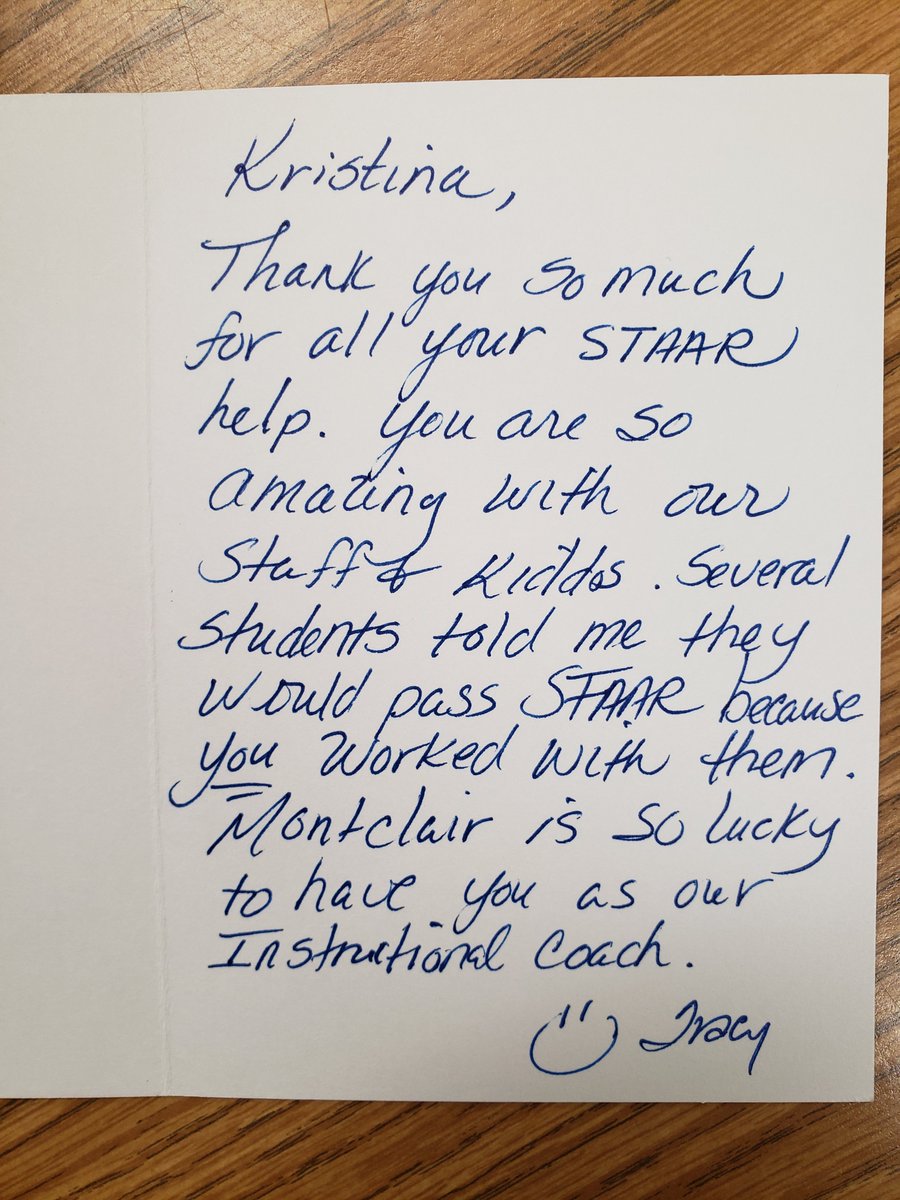 Kristina,
Thank you so much
for all your STAAR
help. You are so
amazing with our
Staff & Kiddos. Several
students told me they
would pass STAAR because
you worked with them.
Montclair is so lucky
to have you as our
Instructional Coach.
Tracy